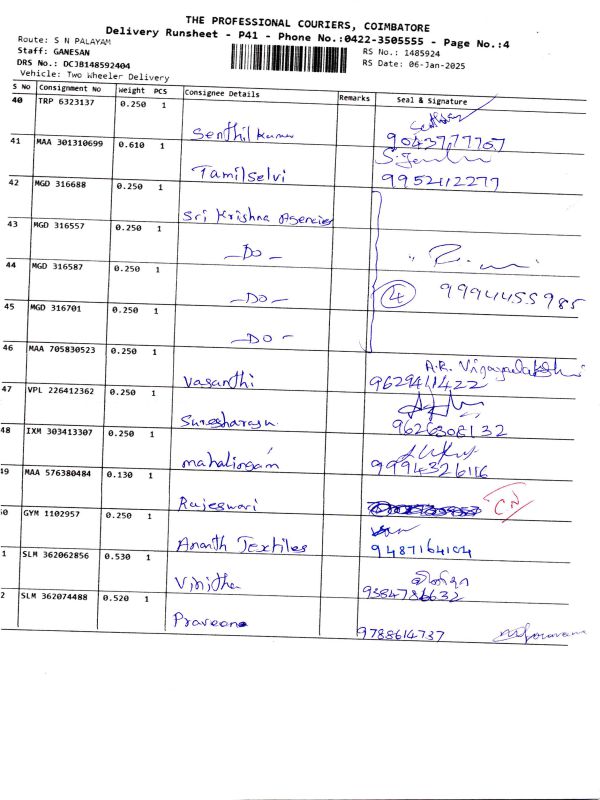 THE PROFESSIONAL COURIERS, COIMBATORE
Delivery Runsheet - P41 - Phone No.:0422-3505555 - Page No.:4
Route: S N PALAYAM
RS No.: 1485924
Staff: GANESAN
RS Date: 06-Jan-2025
DRS No.: DCJB148592404
Vehicle: Two Wheeler Delivery
S No Consignment No Weight PCS Consignee Details Remarks Seal & Signature
40 TRP 6323137 0.250 1
Senthil Kumar 9043777707
41 MAA 301310699 0.610 1
Tamilselvi 9952112277
42 MGD 316688 0.250 1
Sri Krishna Agencies
43 MGD 316557 0.250 1
-DO-
44 MGD 316587 0.250 1
-DO- 4 9994455985
45 MGD 316701 0.250 1
-DO-
46 MAA 705830523 0.250 1
A.R. Vijayalakshmi
Vasanthi 9629411422
47 VPL 226412362 0.250 1
9626308132
48 IXM 303413307 0.250 1
mahalingam 9994326116
49 MAA 576380484 0.130 1
Rajeswari C.N
0 GYM 1102957 0.250 1
Ananth Textiles 9487164104
1 SLM 362062856 0.530 1
Vinitha 9384786632
2 SLM 362074488 0.520 1
Praveena 9788614737